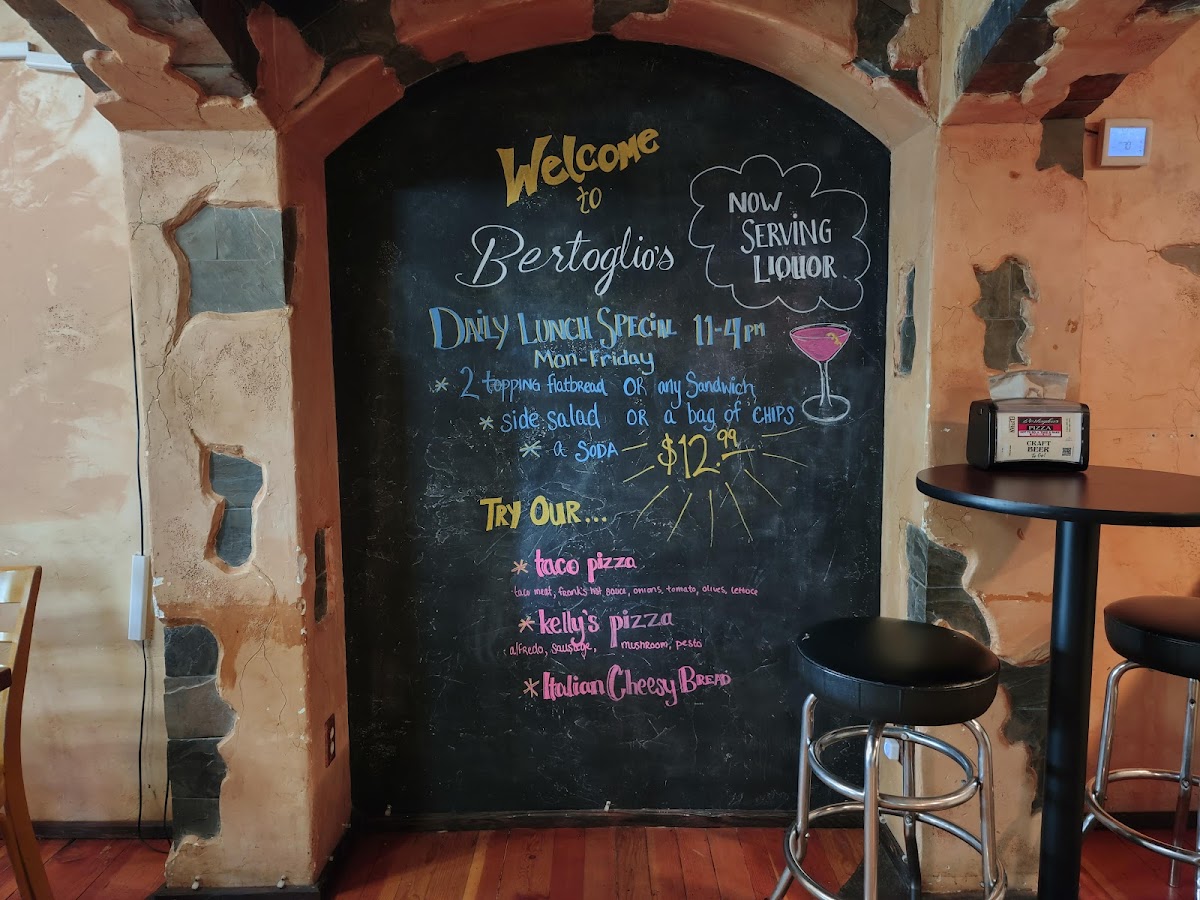 Welcome
to
Bertoglio's
NOW
SERVING
LIQUOR
DAILY LUNCH SPECIAL 11-4pm
Mon-Friday
* 2 topping flatbread OR any Sandwich
* side salad OR a bag of CHIPS
* a SODA $12.99
TRY OUR...
* taco pizza
taco meat, frank's hot sauce, onions, tomato, olives, lettuce
* kelly's pizza
alfredo, sausage, mushroom, pesto
* Italian Cheesy BREAD
Bertoglio's
PIZZA
CRAFT
BEER